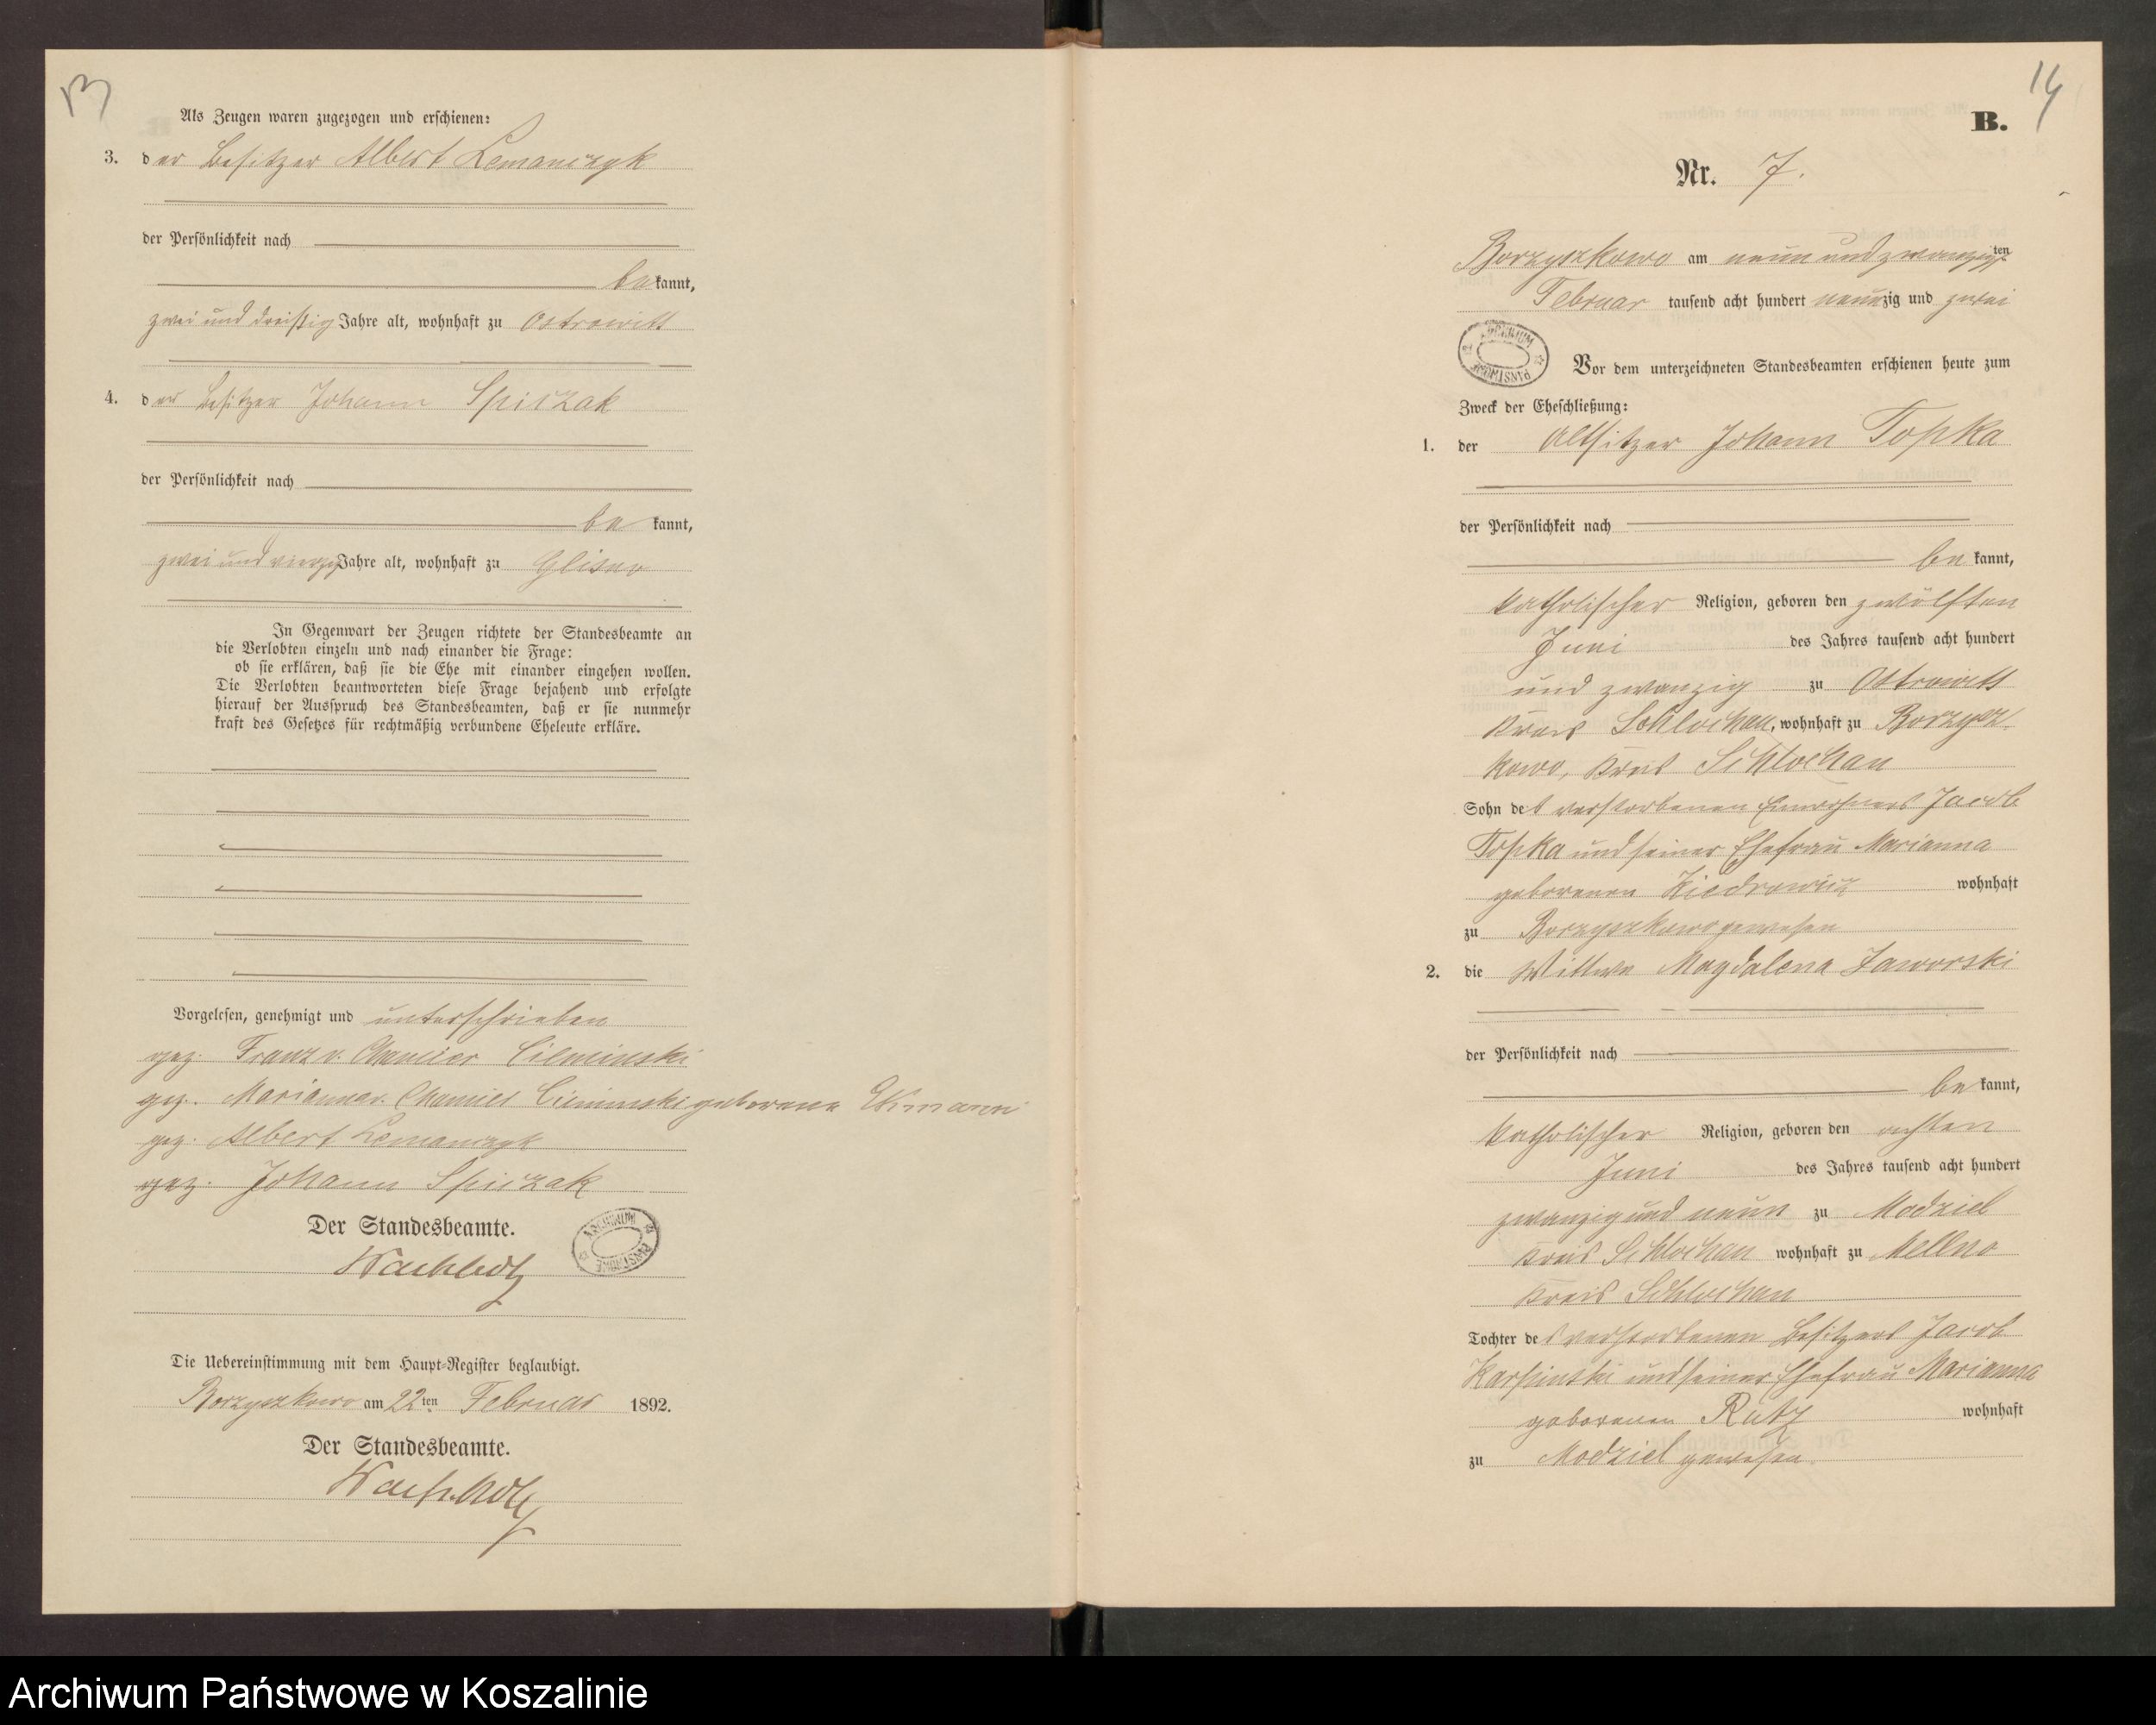 13
Als Zeugen waren zugezogen und erschienen:
3. der Besitzer Albert Lemanczyk
der Persönlichkeit nach
bekannt,
zwei und dreißig Jahre alt, wohnhaft zu Ostrowitt
4. der Besitzer Johann Spiczak
der Persönlichkeit nach
bekannt,
zwei und vierzig Jahre alt, wohnhaft zu Glisno
In Gegenwart der Zeugen richtete der Standesbeamte an
die Verlobten einzeln und nach einander die Frage:
ob sie erklären, daß sie die Ehe mit einander eingehen wollen.
Die Verlobten beantworteten diese Frage bejahend und erfolgte
hierauf der Ausspruch des Standesbeamten, daß er sie nunmehr
kraft des Gesetzes für rechtmäßig verbundene Eheleute erkläre.
Vorgelesen, genehmigt und unterschrieben
gez. Franz v. Chamier Cieminski
gez. Marianna v. Chamier Cieminski geborene
gez. Albert Lemanczyk
gez. Johann Spiczak
Der Standesbeamte.
ARCHIWUM PAŃSTWOWE
Die Uebereinstimmung mit dem Haupt-Register beglaubigt.
Borzyszkowo am 22ten Februar 1892.
Der Standesbeamte.
14
B.
Nr. 7.
Borzyszkowo am neun und zwanzigsten
Februar tausend acht hundert neunzig und zwei
ARCHIWUM PAŃSTWOWE
Vor dem unterzeichneten Standesbeamten erschienen heute zum
Zweck der Eheschließung:
1. der Altsitzer Johann Topka
der Persönlichkeit nach
bekannt,
katholischer Religion, geboren den zwölften
Juni des Jahres tausend acht hundert
und zwanzig zu Ostrowitt
Kreis Schlochau, wohnhaft zu Borzysz
kowo, Kreis Schlochau
Sohn des verstorbenen Einwohners Jacob
Topka und seiner Ehefrau Marianna
geborenen Kiedrowicz wohnhaft
zu Borzyszkowo gewesen
2. die Wittwe Magdalena Jaworski
der Persönlichkeit nach
bekannt,
katholischer Religion, geboren den achten
Juni des Jahres tausend acht hundert
zwanzig und neun zu Modziel
Kreis Schlochau wohnhaft zu Mellno
Kreis Schlochau
Tochter des verstorbenen Besitzers Jacob
Karpinski und seiner Ehefrau Marianna
geborenen Rutz wohnhaft
zu Modziel gewesen.
Archiwum Państwowe w Koszalinie